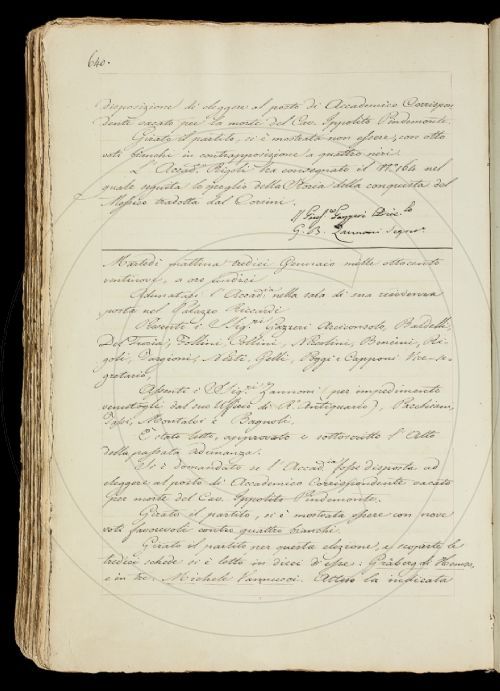 640.
disposizione di eleggere al posto di Accademico Corrispon
dente vacato per la morte del Cav. Ippolito Pindemonte.
Girato il partito, si è mostrata non essere, con otto
voti bianchi in contrapposizione a quattro neri.
L'Accad.co Rigoli ha consegnato il N.o 164 nel
quale seguita lo spoglio della Storia della conquista del
Messico tradotta dal Corsini.
G. B. Zannoni Segret.
Martedì mattina tredici Gennaio mille ottocento
ventinove, a ore undici
Adunatasi l'Accad.ia nella sala di sua residenza
posta nel Palazzo Riccardi
Presenti i Sig.ri Sarzeri Arciconsolo, Baldelli,
Del Furia, Follini, Collini, Nicolini, Bencini, Ri-
goli, Targioni, Nesti, Gelli, Poggi e Capponi Vice-Se-
gretario,
Assenti i Sig.ri Zannoni (per impedimento
venutogli dal suo Ufficio di R. Antiquario), Pacchiani,
Montalvi e Bagnoli.
È stato letto, approvato e sottoscritto l'Atto
della passata adunanza.
Si è domandato se l'Accad.ia fosse disposta ad
eleggere al posto di Accademico Corrispondente vacato
per morte del Cav. Ippolito Pindemonte.
Girato il partito, si è mostrata essere con nove
voti favorevoli contro quattro bianchi.
Girato il partito per questa elezione, e scoperte le
tredici schede si è letto in dieci di esse: Gräberg di Hemsò,
e in tre, Michele Vannucci. Atteso la indicata